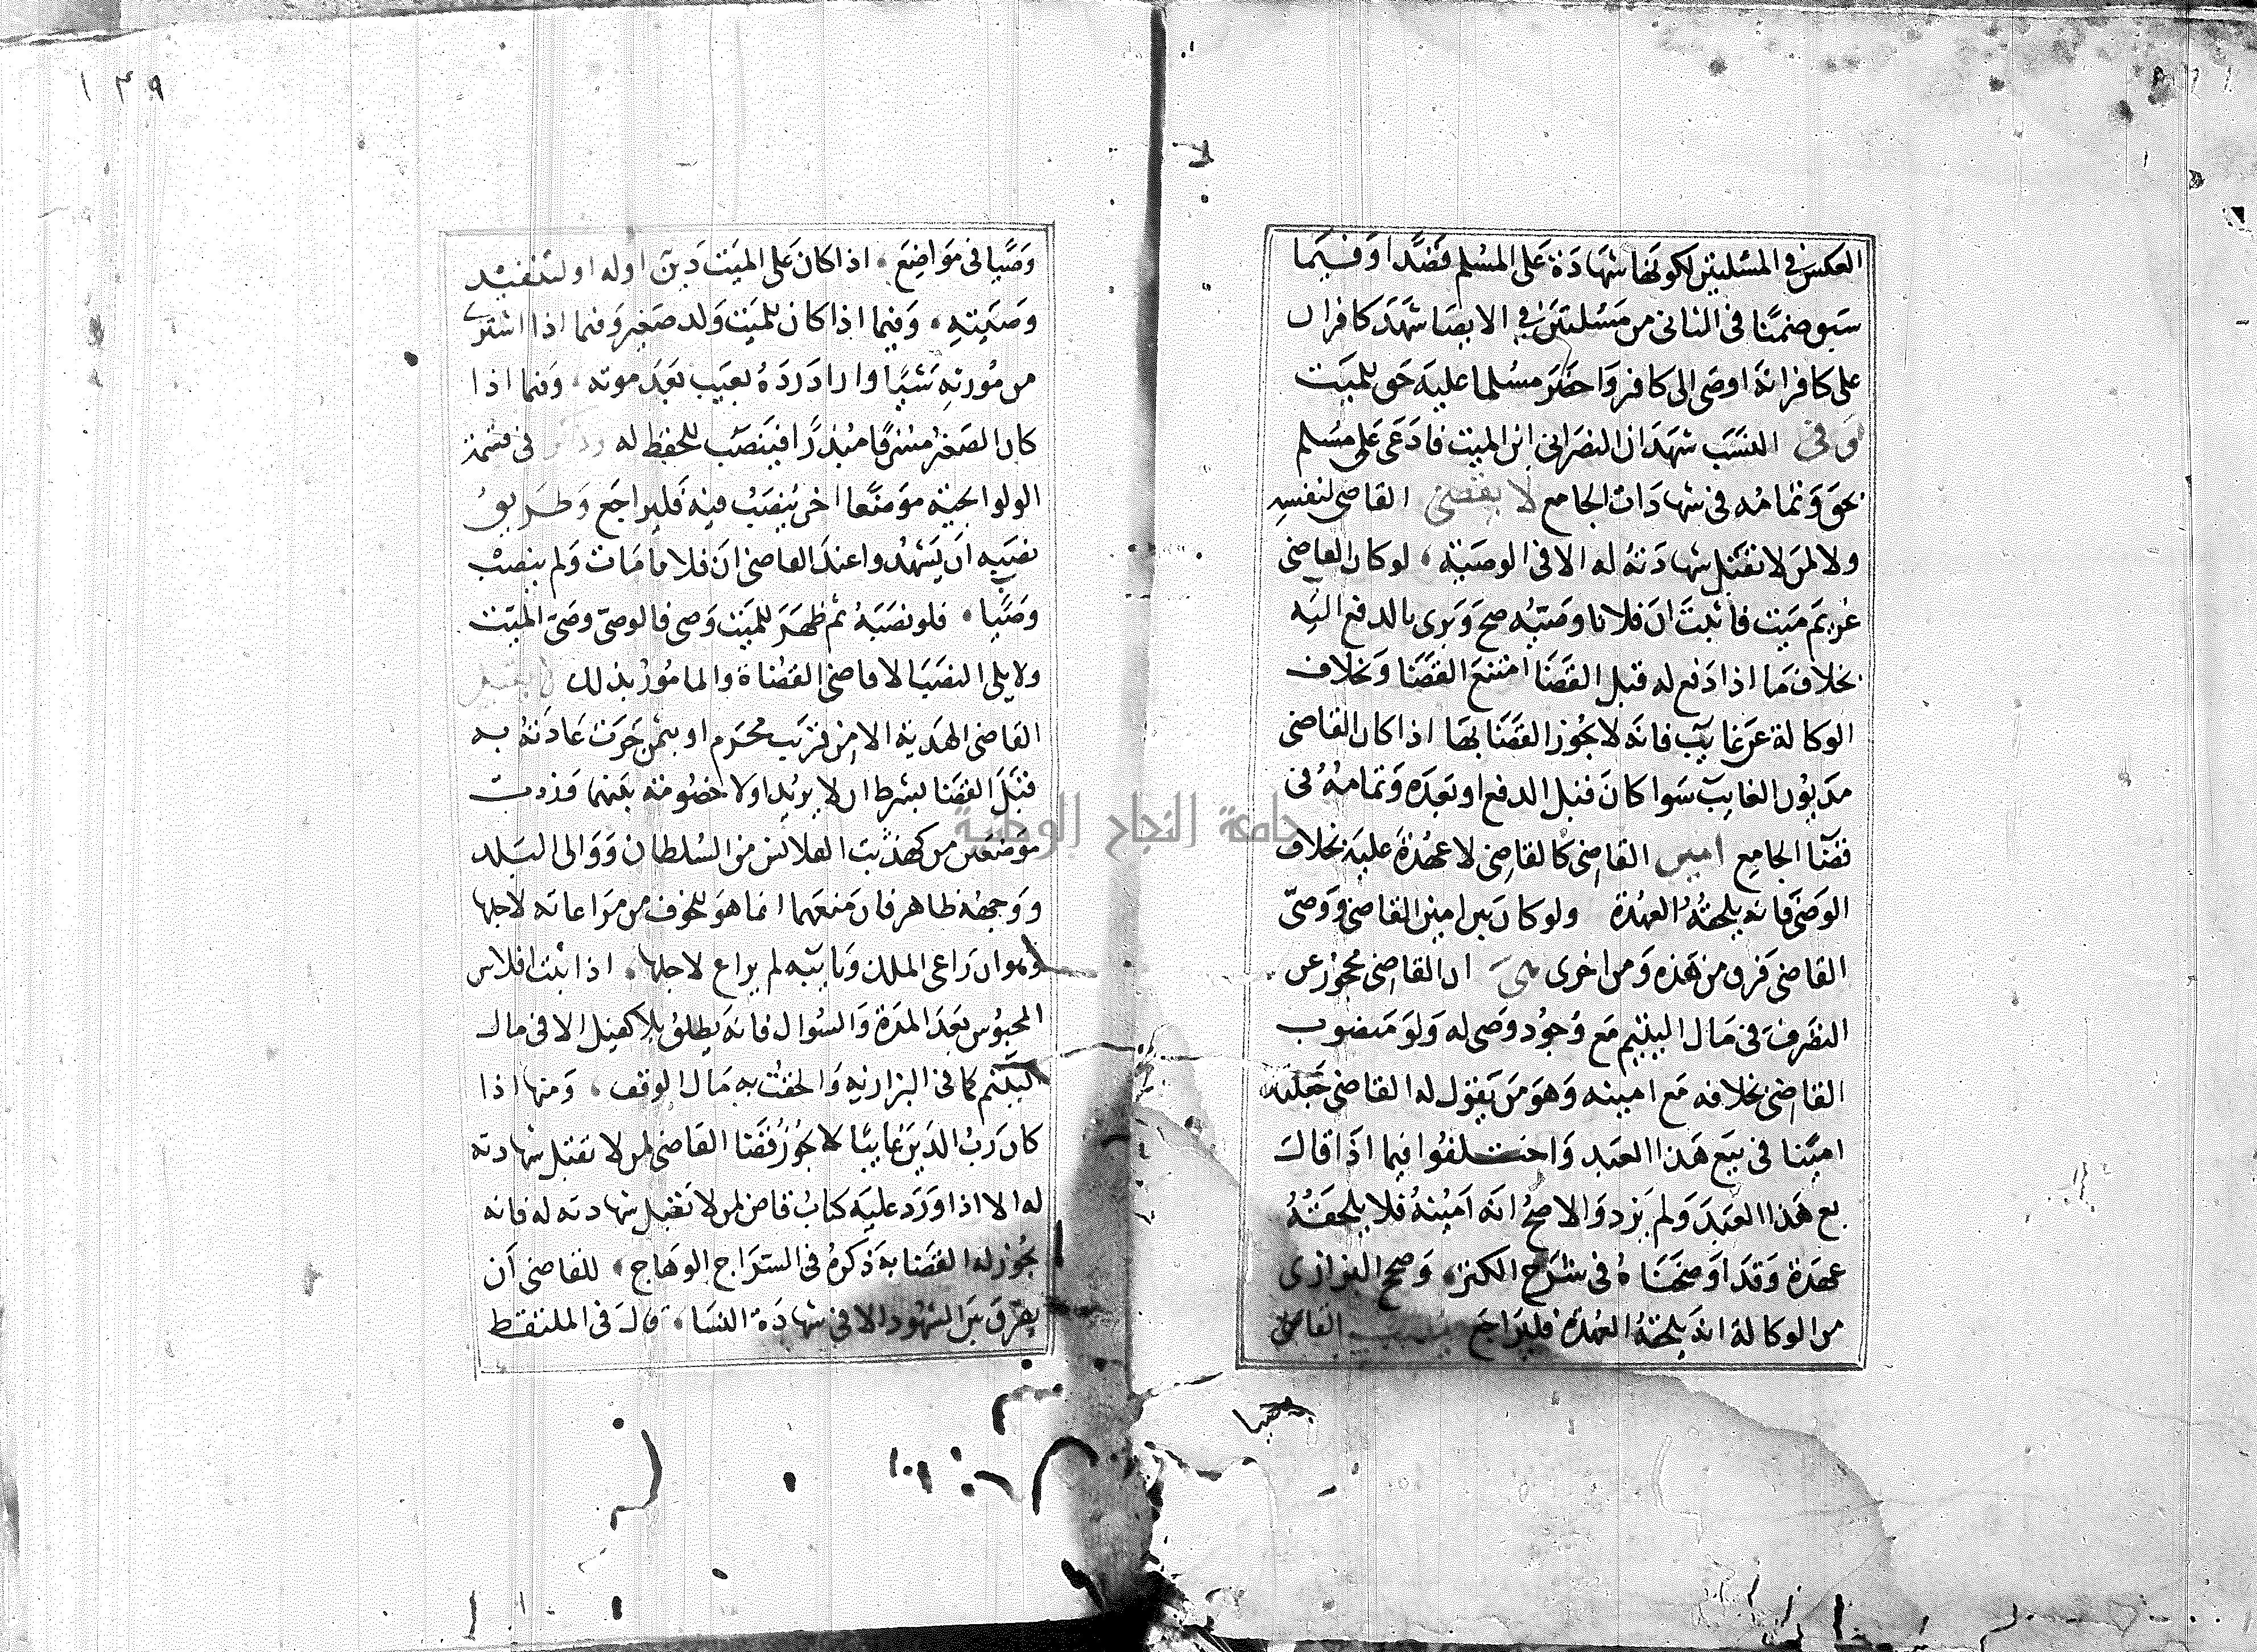 العكس في المسئلتين لكونها شهادة على المسلم قصدا وفيما
سبق ضمنا في الثاني من مسئلتين في الايصا شهد كافران
على كافر انه اوصى الى كافر واحضر مسلما عليه حق للميت
وفي النسب شهد ان النصراني ابن الميت فادعى على مسلم
بحق وتمامه في شهادات الجامع لا يقضي القاضي لنفسه
ولا لمن لا تقبل شهادته له الا في الوصية، لو كان القاضي
غريم ميت فاثبت ان فلانا وصيه صح وبرى بالدفع اليه
بخلاف ما اذا دفع له قبل القضا امتنع القضا وبخلاف
الوكالة عن غايب فانه لا يجوز القضا بها اذا كان القاضي
مديون الغايب سوا كان قبل الدفع او بعده وتمامه في
قضا الجامع امين القاضي كالقاضي لا عهدة عليه بخلاف
الوصي فانه يلحقه العهدة ولو كان بين امين القاضي ووصي
القاضي فرق من هذه ومن اخرى هي ان القاضي محجوز عن
التصرف في مال اليتيم مع وجود وصي له ولو منصوب
القاضي بخلافه مع امينه وهو من يقول له القاضي جعلتك
امينا في بيع هذا العبد واختلفوا فيما اذا قال
بع هذا العبد ولم يزد والاصح انه امينه فلا يلحقه
عهدة وقد اوضحناه في شرح الكنز، وصحح البزازي
من الوكالة انه يلحقه العهدة فليراجع ينصب القاضي
وصيا
١٣٩
وصيا في مواضع، اذا كان على الميت دين اوله او لتنفيذ
وصيته، وفيما اذا كان للميت ولد صغير وفيما اذا اشترى
من مورثه شيا واراد رده بعيب بعد موته، وفيما اذا
كان الصغير مسرفا مبذرا فينصب للحفظ له وذكر في قسمة
الولوالجية موضعا اخر ينصب فيه فليراجع وطريق
نصبه ان يشهدوا عند القاضي ان فلانا مات ولم ينصب
وصيا، فلو نصبه ثم ظهر للميت وصي فالوصي وصي الميت
ولا يلي النصب الا قاضي القضاة والمامور بذلك لا يقبل
القاضي الهدية الا من قريب محرم او بمن جرت عادته به
قبل القضا بشرط ان لا يزيد ولا خصومة بينهما وزدت
موضعين من تهذيب القلانسي من السلطان ووالي البلد
ووجهه ظاهر فان منعهما انما هو للخوف من مراعاته لاجلها
وهو ان راعى الملك ونايبه لم يراع لاجلها، اذا ثبت افلاس
المحبوس بعد المدة والسوال فانه يطلق بلا كفيل الا في مال
اليتيم كما في البزازية والحقت به مال الوقف، ومنها اذا
كان رب الدين غايبا لا يجوز قضا القاضي لمن لا تقبل شهادته
له الا اذا ورد عليه كتاب قاض لمن لا تقبل شهادته له فانه
يجوز له القضا به ذكره في السراج الوهاج، للقاضي ان
يفرق بين الشهود الا في شهادة النسا، قال في الملتقط
جامعة النجاح الوطنية